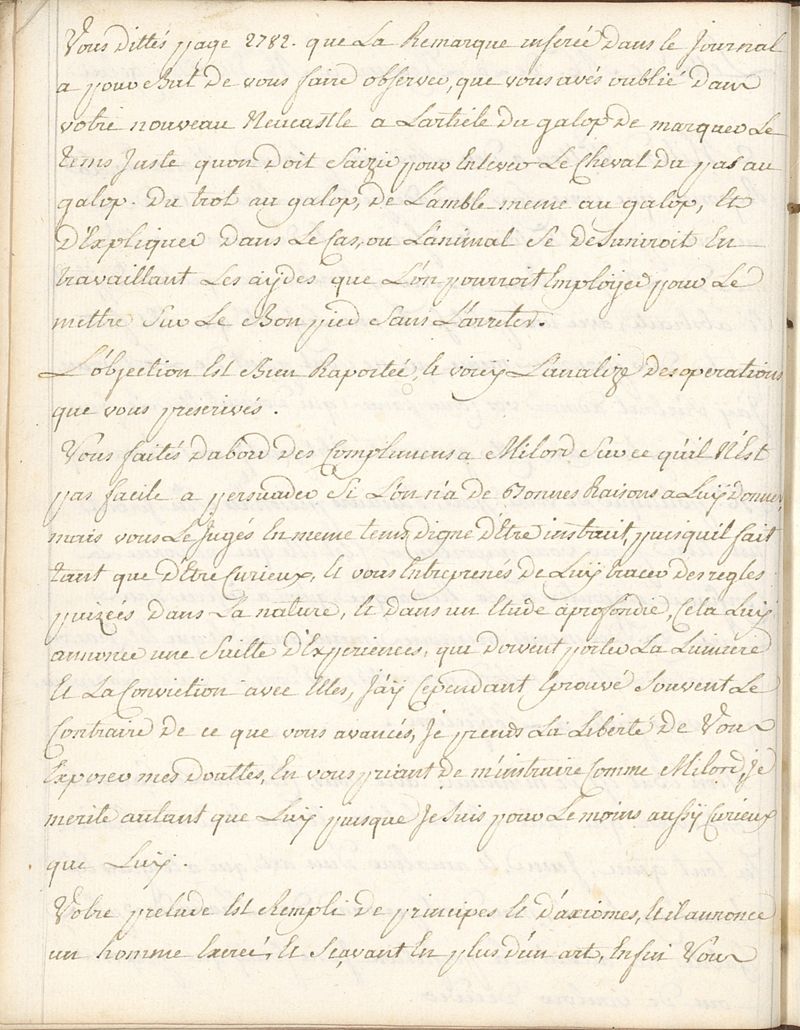 Vous dittés page 2782. que La Remarque inserée Dans le Journal
a pour But De vous faire observer, que vous avés oublié Dans
votre nouveau Neucastle a L'article Du galop De marquer Le
tems Juste quon Doit Saizir pour Enlever Le Cheval Du pas au
galop. Du trot au galop, De L'amble meme au galop, Et
D'Expliquer Dans Le Cas, ou L'animal Se Desuniroit En
travaillant Les aÿdes que L'on pourroit Employer pour Le
mettre Sur Le Bon pied Sans L'arreter.
L'objection Est Bien Raportée, Et voicÿ L'analize Des operations
que vous prescrivés.
Vous faités Dabord Des Complimens a Milord Sur ce qu'il N'Est
pas facile a persuader Si L'on n'a De Bonnes Raisons a Luÿ Donner,
mais vous Le Jugés En meme tems Digne D'Etre instruit, puisquil fait
tant que D'Etre Curieux, Et vous Entreprenés De Luÿ tracer Des regles
puizées Dans La nature, Et Dans un Etude aprofondie, Cela Luÿ
annonce une Suitte D'Experiences, qui Doivent porter La Lumiere
Et La Conviction avec Elles, J'aÿ Cependant Eprouvé Souvent Le
Contraire De ce que vous avancés, Je prends La Liberté De Vous
Exposer mes Doutes, En vous priant De m'instruire Comme Milord, Je
merite autant que Luÿ puisque Je Suis pour Le moins aussÿ Curieux
que Luÿ.
Votre prelude Est Rempli De principes Et D'axiomes, Et il annonce
un homme Exercé, Et Sçavant En plus D'un art, Enfin Vous